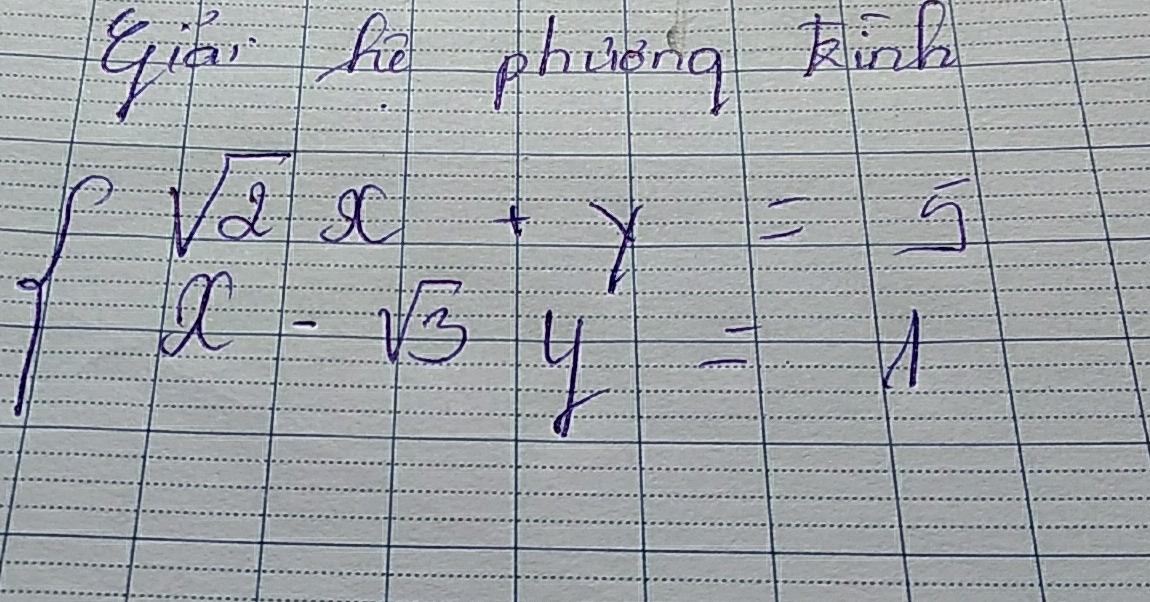 Giải hệ phương trình
√2 x + y = 5
x - √3 y = 1